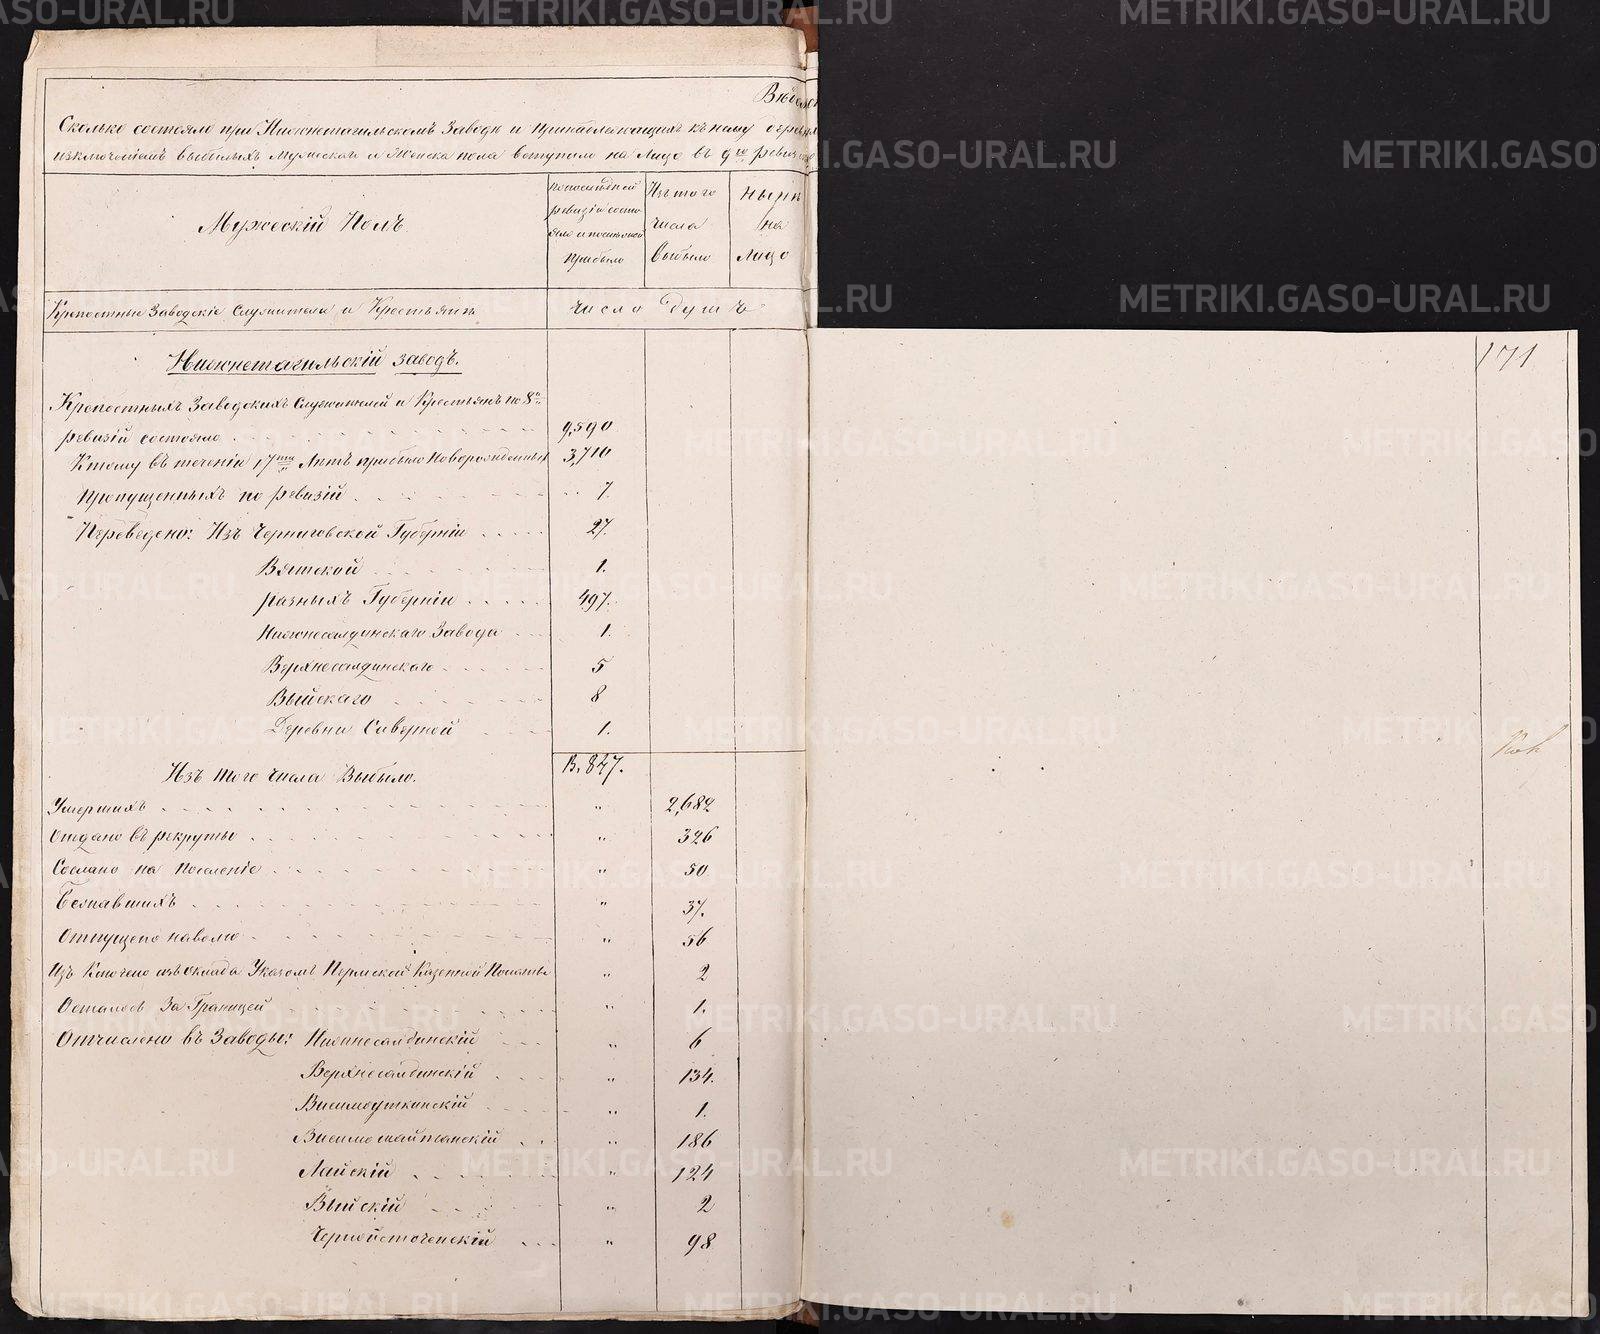 Вѣдом
Сколько состояло при Нижнетагильскомъ Заводѣ и принадлежащихъ къ нему
изключеніемъ выбылыхъ Мужеска и Женска пола вступило на Лицо въ 9ю ревизію
Мужескій Полъ.
по послѣдней ревизіи состояло и после оной прибыло
Изъ того числа Выбыло
Нынѣ на Лицо
Крепостные Заводскіе Служители и Крестьяне
число душъ
Нижнетагильскій заводъ.
Крепостныхъ Заводскихъ Служителей и Крестьянъ по 8й
ревизіи состояло 9,590
К тому въ теченіи 17ти Лѣтъ прибыло Новорожденныхъ 3,710
Пропущенныхъ по ревизіи 7.
Переведено: Изъ Черниговской Губерніи 27.
Вятской 1.
разныхъ Губерніи 497.
Нижнесалдинскаго Завода 1.
Верхнесалдинскаго 5
Выйскаго 8
Деревни Северной 1.
Изъ того числа Выбыло. 13,847.
Умершихъ " 2,682
Отдано въ рекруты " 326
Сослано на поселеніе " 50
Безпавшихъ " 37.
Отпущено на волю " 56
Изъ Ключено изъ оклада Указомъ Пермской Казенной Полаты " 2
Осталось За Границей " 1.
Отчислено въ Заводы: Нижнесалдинскій " 6
Верхнесалдинскій " 134.
Висимоуткинскій " 1.
Висимошайтанскій " 186
Лайскій " 124
Выйскій " 2
Черноисточенскій " 98
171
METRIKI.GASO-URAL.RU